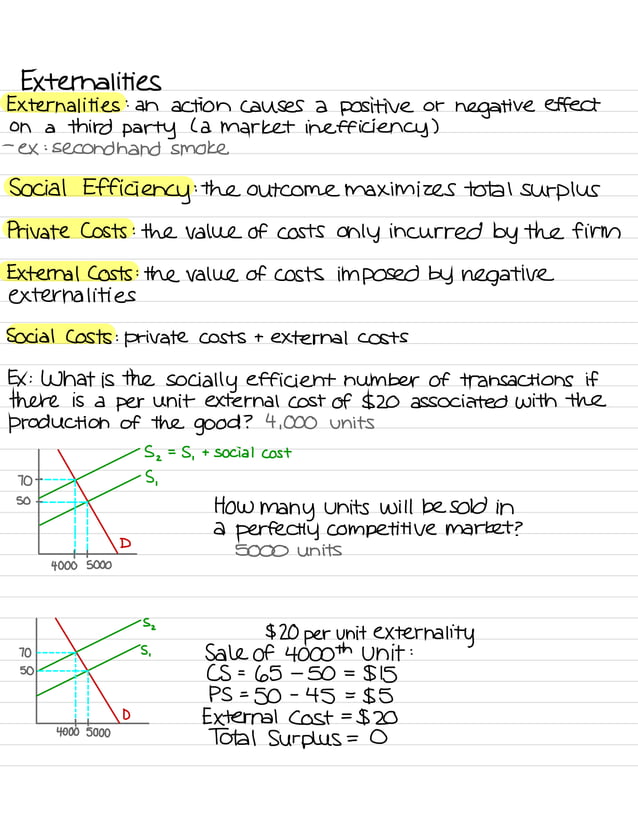 Externalities
Externalities: an action causes a positive or negative effect
on a third party (a market inefficiency)
- ex: secondhand smoke
Social Efficiency: the outcome maximizes total surplus
Private Costs: the value of costs only incurred by the firm
External Costs: the value of costs imposed by negative
externalities
Social Costs: private costs + external costs
Ex: What is the socially efficient number of transactions if
there is a per unit external cost of $20 associated with the
production of the good? 4,000 units
S₂ = S₁ + social cost
S₁
70
50
D
4000 5000
How many units will be sold in
a perfectly competitive market?
5000 units
S₂
S₁
70
50
D
4000 5000
$20 per unit externality
Sale of 4000th Unit:
CS = 65 - 50 = $15
PS = 50 - 45 = $5
External Cost = $20
Total Surplus = 0